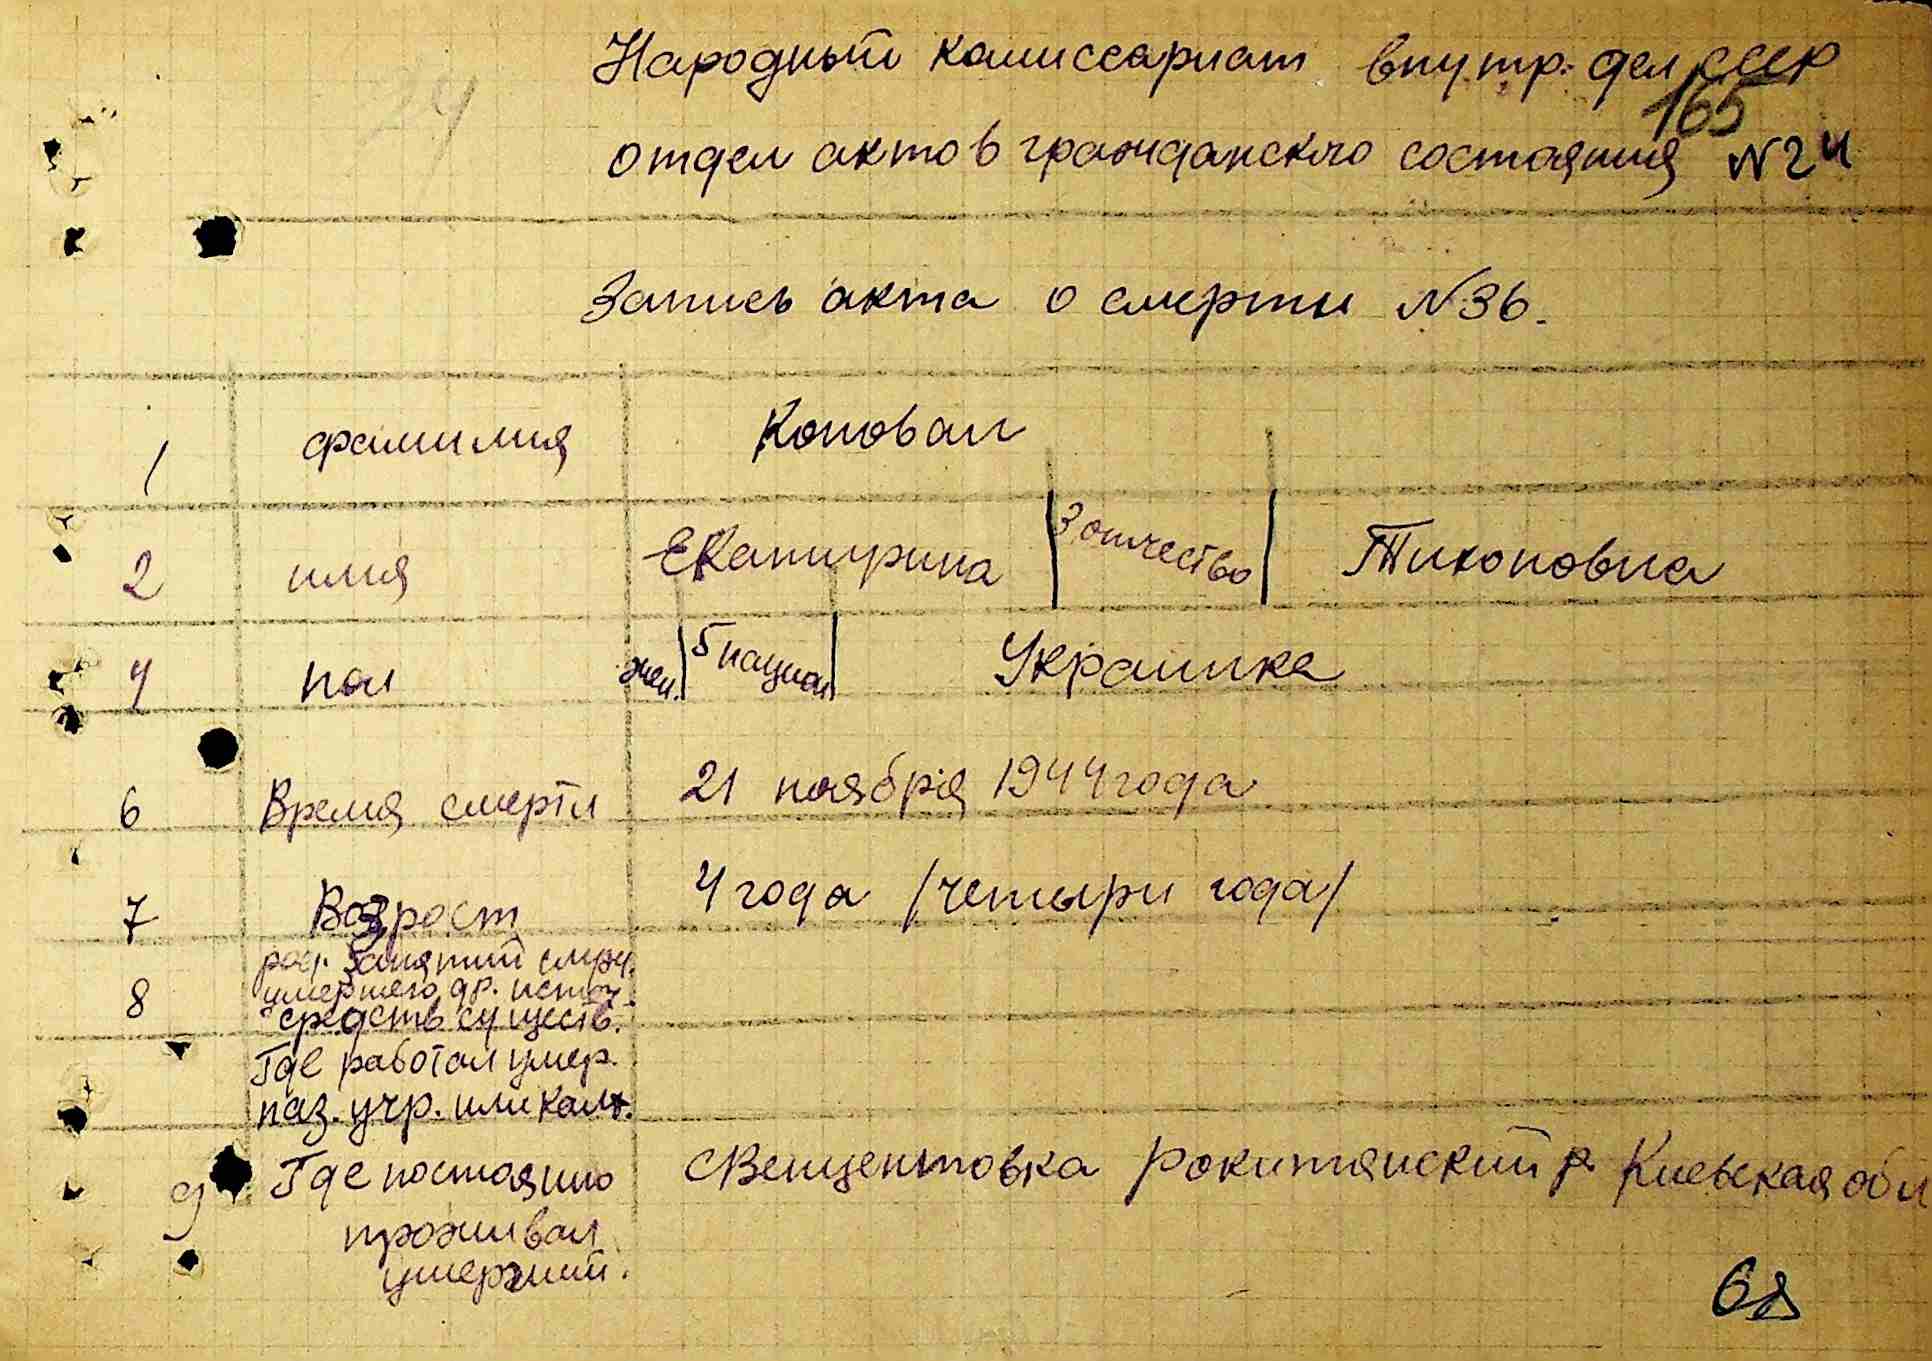 24
Народный комиссариат внутр. дел СССР
165
отдел актов гражданского состояния №24
Запись акта о смерти №36.
1 фамилия Коновал
2 имя Екатирина 3 отчество Тихоновна
4 пол жен. 5 национ Украинка
6 Время смерти 21 ноября 1944 года
7 Возрост 4 года /четыри года/
род. Занятий служ.
8 умершего др. источ.
средств существ.
Где работал умер.
наз. учр. или
9 Где постоянно Рокитянский р Киевская обл
проживал
умерший.
68